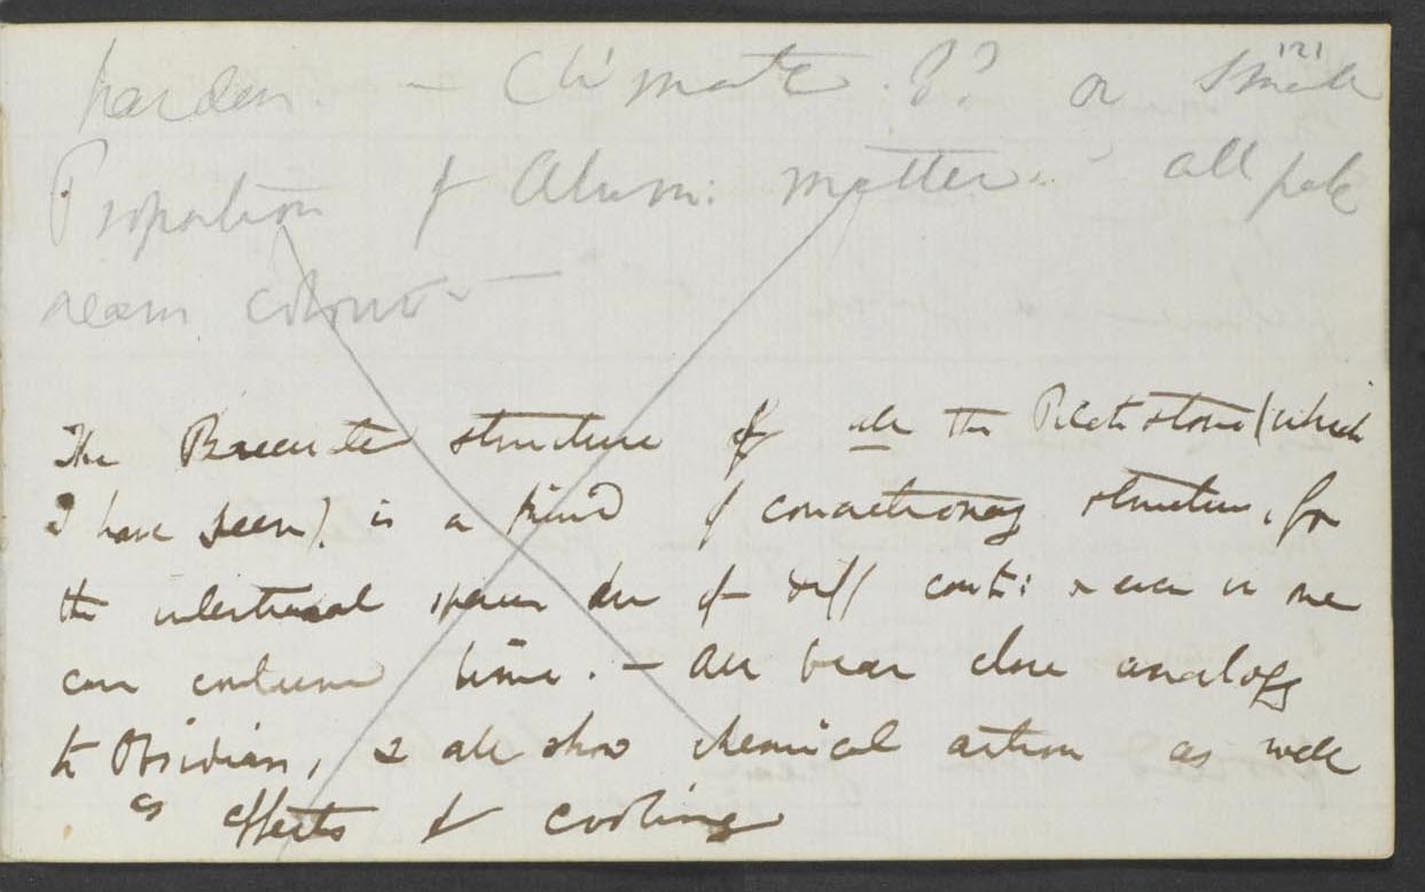 121
harden. — Climate. ?? or small
Proportion of Alum: matter. — all pale
cream colour —
The Brecciated structure of all the Pitchstone (which
I have seen). is a kind of concretionary structure, for
the interstitial spaces are of diff cont: & even in one
case contained lime. — All bear close analogy
to Obsidian, & all show chemical action as well
as effects of cooling